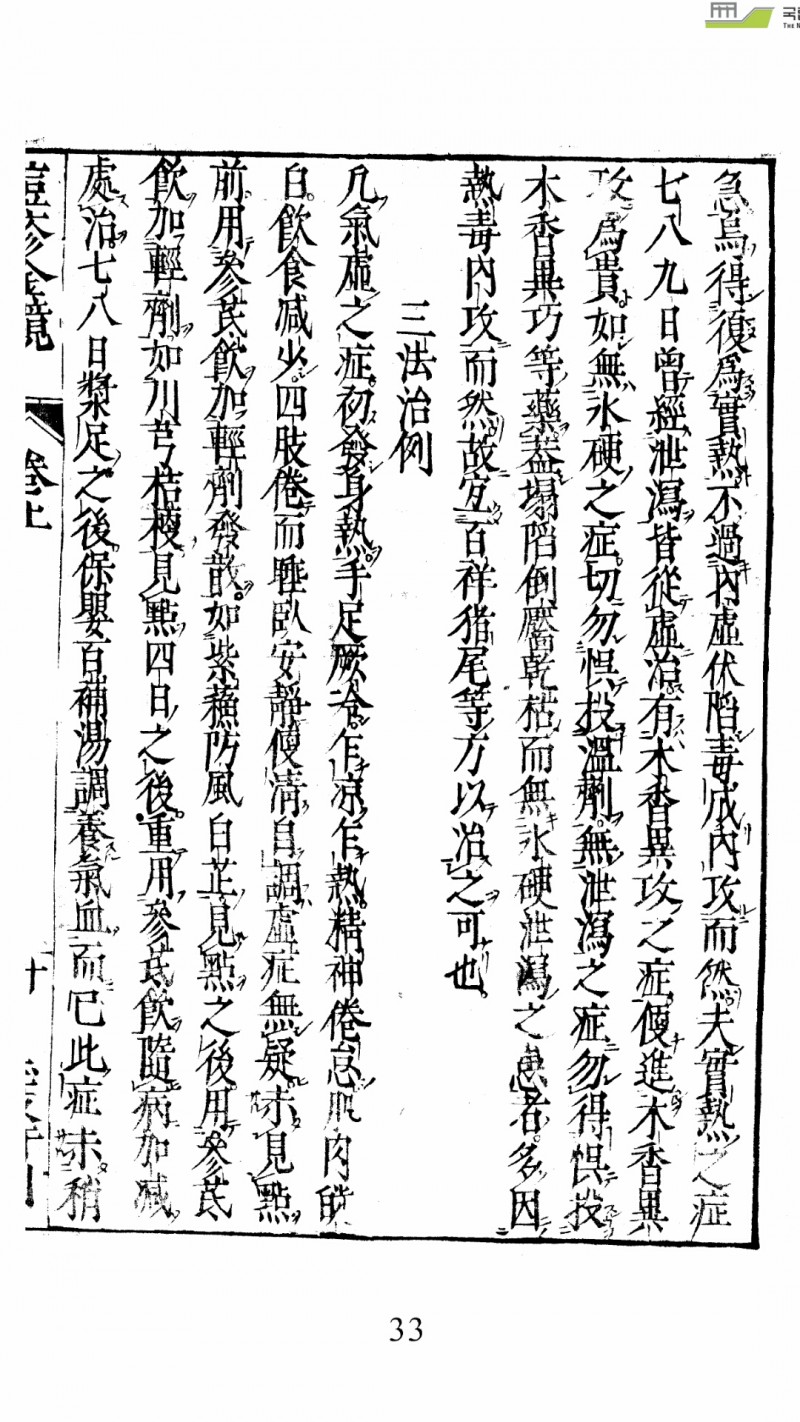 急焉得復爲實熱不過內虛伏陷毒成內攻而然夫實熱之症
七八九日曾經泄瀉皆從虛治有木香異攻之症便進木香異
攻爲貴如無氷硬之症切勿惧投溫劑無泄瀉之症勿得惧投
木香異巧等藥蓋塌陷倒靨乾枯而無氷硬泄瀉之患者多因
熱毒內攻而然故宜百祥猪尾等方以治之可也
三法治例
凡氣虛之症初發身熱手足厥冷乍凉乍熱精神倦怠肌肉
白飮食減少四肢倦而睡臥安靜便淸自調虛症無疑未見點
前用參芪飮加輕劑發散如紫蘓防風白芷見點之後用參芪
飮加輕劑如川芎桔梗見點四日之後重用參芪飮隨病加減
處治七八日漿足之後保嬰百補湯調養氣血而已此症未稍
痘疹金鏡 卷上 十
33